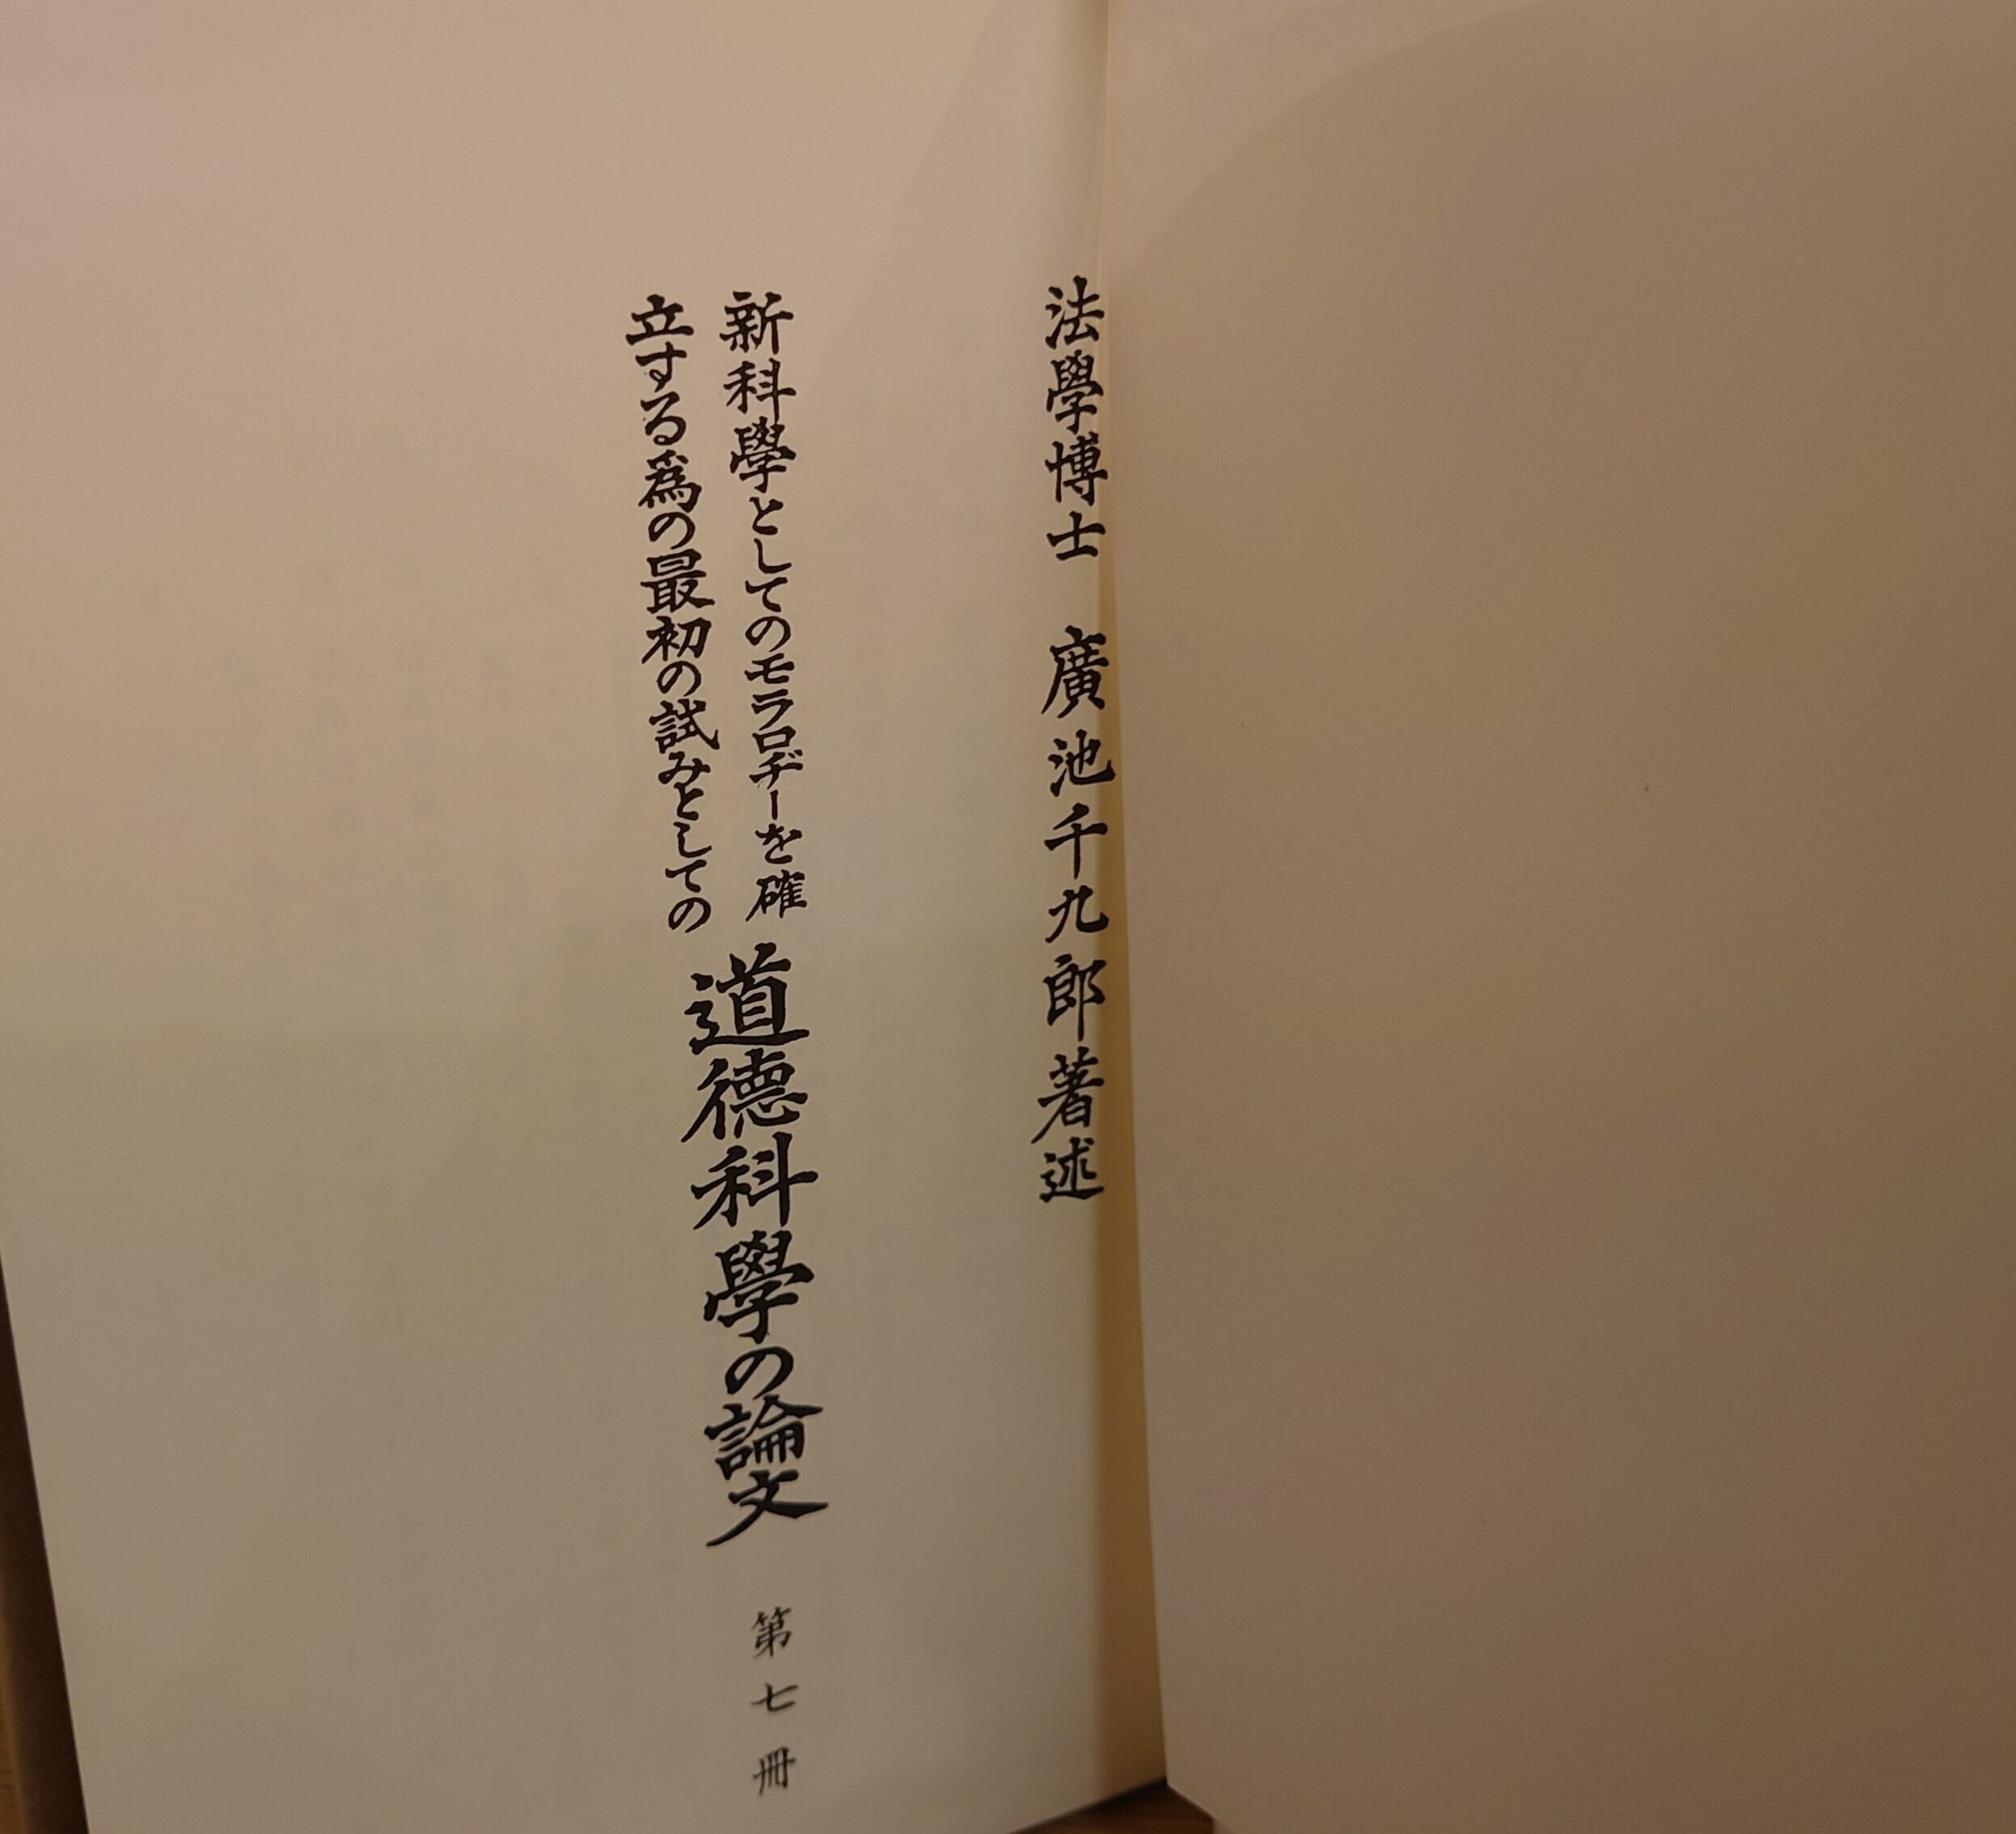 法學博士　廣池千九郎著述
新科學としてのモラロヂーを確
立する爲の最初の試みとしての
道德科學の論文
第七冊